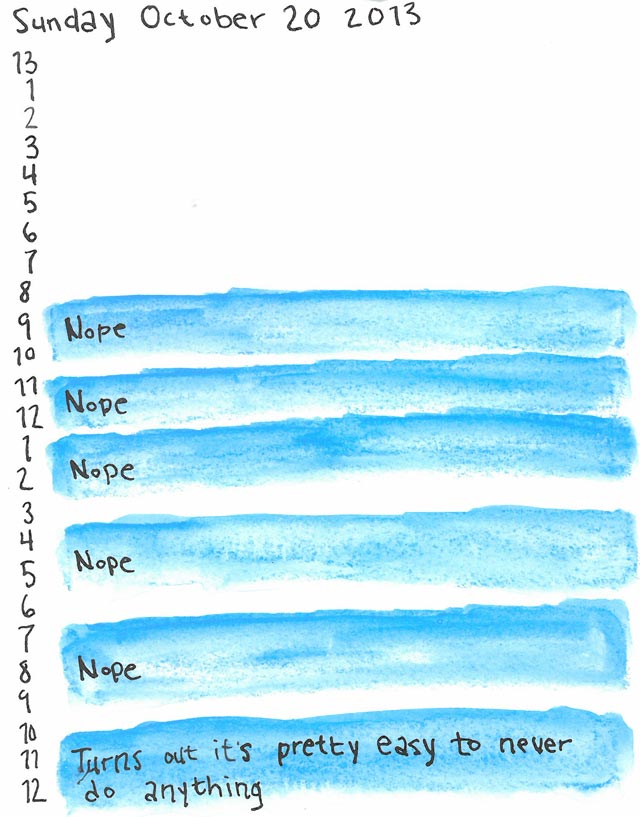 Sunday October 20 2013
13
1
2
3
4
5
6
7
8
9 Nope
10
11 Nope
12
1
2 Nope
3
4
5 Nope
6
7
8 Nope
9
10
11 Turns out it's pretty easy to never
12 do anything